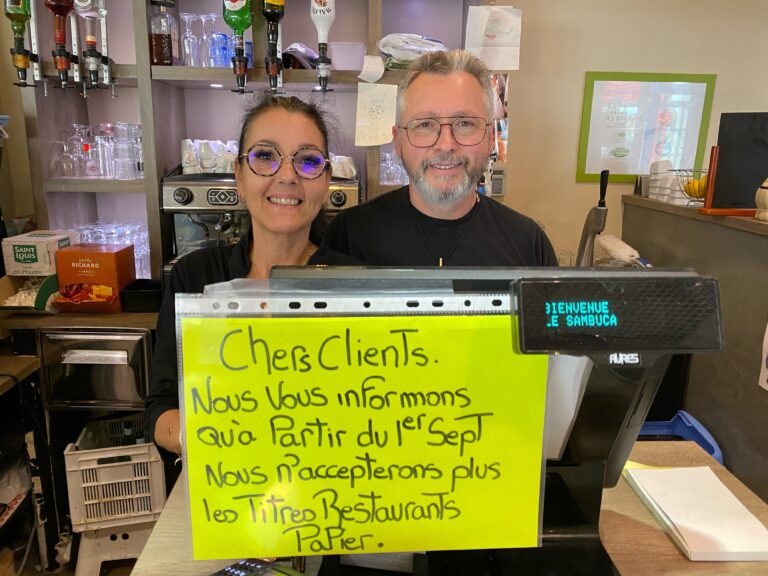 SAINT LOUIS
EN POUDRE
CAFÉS
RICHARD
BIENVENUE
LE SAMBUCA
AURES
Chers Clients.
Nous Vous informons
qu'à Partir du 1er Sept
Nous n'accepterons plus
les Titres Restaurants
Papier.